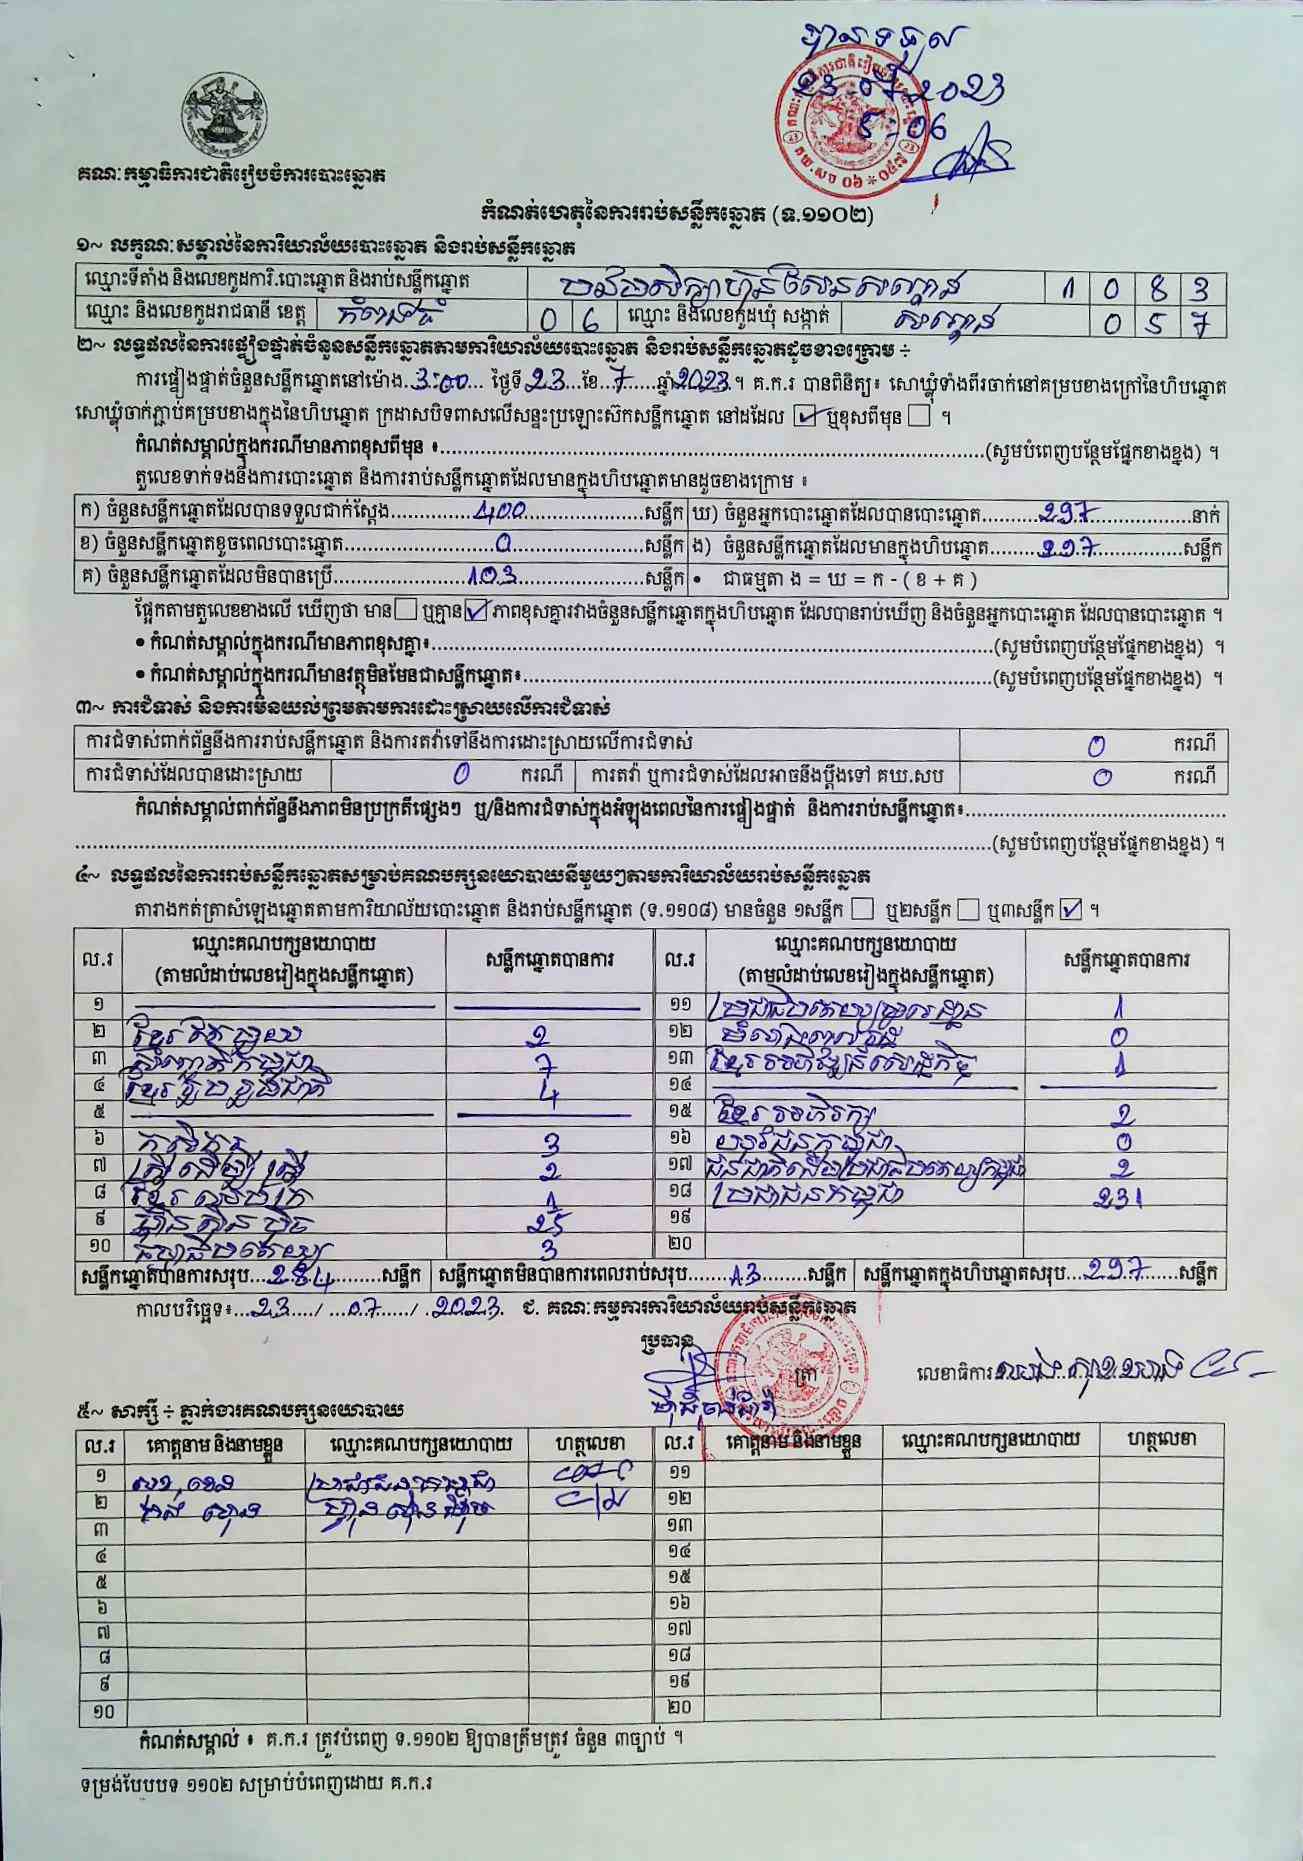 បានទទួល
23-07-2023
5:06
គណៈកម្មាធិការជាតិរៀបចំការបោះឆ្នោត
គឃ.សប ០៦ * ០៥៧
កំណត់ហេតុនៃការរាប់សន្លឹកឆ្នោត (ទ.១១០២)
១~ លក្ខណៈសម្គាល់នៃការិយាល័យបោះឆ្នោត និងរាប់សន្លឹកឆ្នោត
ឈ្មោះទីតាំង និងលេខកូដការិ.បោះឆ្នោត និងរាប់សន្លឹកឆ្នោត 1 0 8 3
ឈ្មោះ និងលេខកូដរាជធានី ខេត្ត កំពង់ធំ 0 6 ឈ្មោះ និងលេខកូដឃុំ សង្កាត់ 0 5 7
២~ លទ្ធផលនៃការផ្ទៀងផ្ទាត់ចំនួនសន្លឹកឆ្នោតតាមការិយាល័យបោះឆ្នោត និងរាប់សន្លឹកឆ្នោតដូចខាងក្រោម ÷
ការផ្ទៀងផ្ទាត់ចំនួនសន្លឹកឆ្នោតនៅម៉ោង..3:00... ថ្ងៃទី 23...ខែ..7......ឆ្នាំ2023.។ គ.ក.រ បានពិនិត្យ៖ សោឃ្លុំទាំងពីរចាក់នៅគម្របខាងក្រៅនៃហិបឆ្នោត
សោឃ្លុំចាក់ភ្ជាប់គម្របខាងក្នុងនៃហិបឆ្នោត ក្រដាសបិទពាសលើសន្ទះប្រឡោះស៊កសន្លឹកឆ្នោត នៅដដែល ☑ ឬខុសពីមុន ☐ ។
កំណត់សម្គាល់ក្នុងករណីមានភាពខុសពីមុន ៖..........(សូមបំពេញបន្ថែមផ្នែកខាងខ្នង) ។
តួលេខទាក់ទងនឹងការបោះឆ្នោត និងការរាប់សន្លឹកឆ្នោតដែលមានក្នុងហិបឆ្នោតមានដូចខាងក្រោម ៖
ក) ចំនួនសន្លឹកឆ្នោតដែលបានទទួលជាក់ស្តែង.......400.......សន្លឹក ឃ) ចំនួនអ្នកបោះឆ្នោតដែលបានបោះឆ្នោត.......297.......នាក់
ខ) ចំនួនសន្លឹកឆ្នោតខូចពេលបោះឆ្នោត.......0.......សន្លឹក ង) ចំនួនសន្លឹកឆ្នោតដែលមានក្នុងហិបឆ្នោត.......297.......សន្លឹក
គ) ចំនួនសន្លឹកឆ្នោតដែលមិនបានប្រើ.......103.......សន្លឹក • ជាធម្មតា ង = ឃ = ក - ( ខ + គ )
ផ្អែកតាមតួលេខខាងលើ ឃើញថា មាន ☐ ឬគ្មាន ☑ ភាពខុសគ្នារវាងចំនួនសន្លឹកឆ្នោតក្នុងហិបឆ្នោត ដែលបានរាប់ឃើញ និងចំនួនអ្នកបោះឆ្នោត ដែលបានបោះឆ្នោត ។
• កំណត់សម្គាល់ក្នុងករណីមានភាពខុសគ្នា៖..........(សូមបំពេញបន្ថែមផ្នែកខាងខ្នង) ។
• កំណត់សម្គាល់ក្នុងករណីមានវត្ថុមិនមែនជាសន្លឹកឆ្នោត៖..........(សូមបំពេញបន្ថែមផ្នែកខាងខ្នង) ។
៣~ ការជំទាស់ និងការមិនយល់ព្រមតាមការដោះស្រាយលើការជំទាស់
ការជំទាស់ពាក់ព័ន្ធនឹងការរាប់សន្លឹកឆ្នោត និងការតវ៉ាទៅនឹងការដោះស្រាយលើការជំទាស់ 0 ករណី
ការជំទាស់ដែលបានដោះស្រាយ 0 ករណី ការតវ៉ា ឬការជំទាស់ដែលអាចនឹងប្តឹងទៅ គឃ.សប 0 ករណី
កំណត់សម្គាល់ពាក់ព័ន្ធនឹងភាពមិនប្រក្រតីផ្សេងៗ ឬ/និងការជំទាស់ក្នុងអំឡុងពេលនៃការផ្ទៀងផ្ទាត់ និងការរាប់សន្លឹកឆ្នោត៖..........
..........(សូមបំពេញបន្ថែមផ្នែកខាងខ្នង) ។
៤~ លទ្ធផលនៃការរាប់សន្លឹកឆ្នោតសម្រាប់គណបក្សនយោបាយនីមួយៗតាមការិយាល័យរាប់សន្លឹកឆ្នោត
តារាងកត់ត្រាសំឡេងឆ្នោតតាមការិយាល័យបោះឆ្នោត និងរាប់សន្លឹកឆ្នោត (ទ.១១០៨) មានចំនួន ១សន្លឹក ☐ ឬ២សន្លឹក ☐ ឬ៣សន្លឹក ☑ ។
ល.រ ឈ្មោះគណបក្សនយោបាយ (តាមលំដាប់លេខរៀងក្នុងសន្លឹកឆ្នោត) សន្លឹកឆ្នោតបានការ ល.រ ឈ្មោះគណបក្សនយោបាយ (តាមលំដាប់លេខរៀងក្នុងសន្លឹកឆ្នោត) សន្លឹកឆ្នោតបានការ
១ ១១ ប្រជាធិបតេយ្យមូលដ្ឋាន 1
២ ខ្មែរឯករាជ្យ 2 ១២ 0
៣ សញ្ជាតិកម្ពុជា 7 ១៣ ខ្មែរអភិវឌ្ឍន៍សេដ្ឋកិច្ច 1
៤ ខ្មែររួបរួមជាតិ 4 ១៤
៥ ១៥ ខ្មែរអភិរក្ស 2
៦ កសិករ 3 ១៦ យុវជនកម្ពុជា 0
៧ ស្ត្រីដើម្បីស្ត្រី 2 ១៧ ជនជាតិដើមប្រជាធិបតេយ្យកម្ពុជា 2
៨ 1 ១៨ ប្រជាជនកម្ពុជា 231
៩ ហ្វ៊ុនស៊ិនប៉ិច 25 ១៩
១០ ធម្មាធិបតេយ្យ 3 ២០
សន្លឹកឆ្នោតបានការសរុប...284.......សន្លឹក សន្លឹកឆ្នោតមិនបានការពេលរាប់សរុប.......13.......សន្លឹក សន្លឹកឆ្នោតក្នុងហិបឆ្នោតសរុប...297.....សន្លឹក
កាលបរិច្ឆេទ៖...23..../...07...../..2023. ជ. គណៈកម្មការការិយាល័យរាប់សន្លឹកឆ្នោត
ប្រធាន
ត្រា
លេខាធិការ
៥~ សាក្សី ÷ ភ្នាក់ងារគណបក្សនយោបាយ
ល.រ គោត្តនាម និងនាមខ្លួន ឈ្មោះគណបក្សនយោបាយ ហត្ថលេខា ល.រ គោត្តនាម និងនាមខ្លួន ឈ្មោះគណបក្សនយោបាយ ហត្ថលេខា
១ ប្រជាជនកម្ពុជា ១១
២ ហ្វ៊ុនស៊ិនប៉ិច ១២
៣ ១៣
៤ ១៤
៥ ១៥
៦ ១៦
៧ ១៧
៨ ១៨
៩ ១៩
១០ ២០
កំណត់សម្គាល់ ៖ គ.ក.រ ត្រូវបំពេញ ទ.១១០២ ឱ្យបានត្រឹមត្រូវ ចំនួន ៣ច្បាប់ ។
ទម្រង់បែបបទ ១១០២ សម្រាប់បំពេញដោយ គ.ក.រ